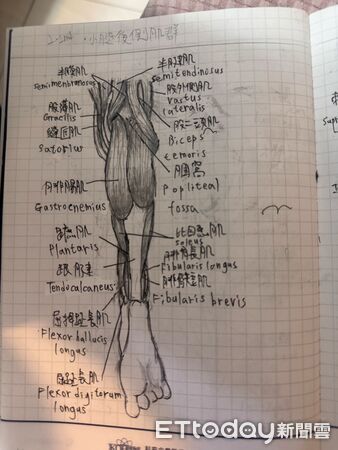 小腿後側肌群
半膜肌
Semimembranosus
股薄肌
Gracilis
縫匠肌
Satoriw
腓腸肌
Gastrocnemius
蹠肌
Plantaris
跟腱
Tendocalcaneus
屈拇趾長肌
Flexor hallucis
longus
屈趾長肌
Flexor digitorum
longus
半腱肌
Semitendinosus
股外側肌
Vastus
lateralis
股二頭肌
Biceps
femoris
膕窩
Popliteal
fossa
比目魚肌
Soleus
腓骨長肌
Fibularis longus
腓骨短肌
Fibularis brevis
ETtoday新聞雲